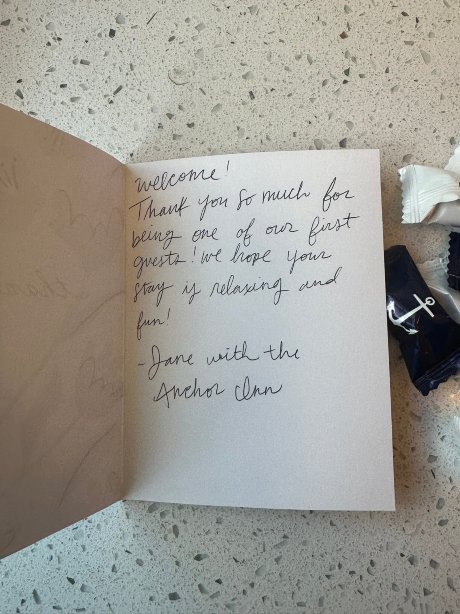 Welcome!
Thank you so much for
being one of our first
guests! We hope your
stay is relaxing and
fun!
-Jane with the
Anchor Inn